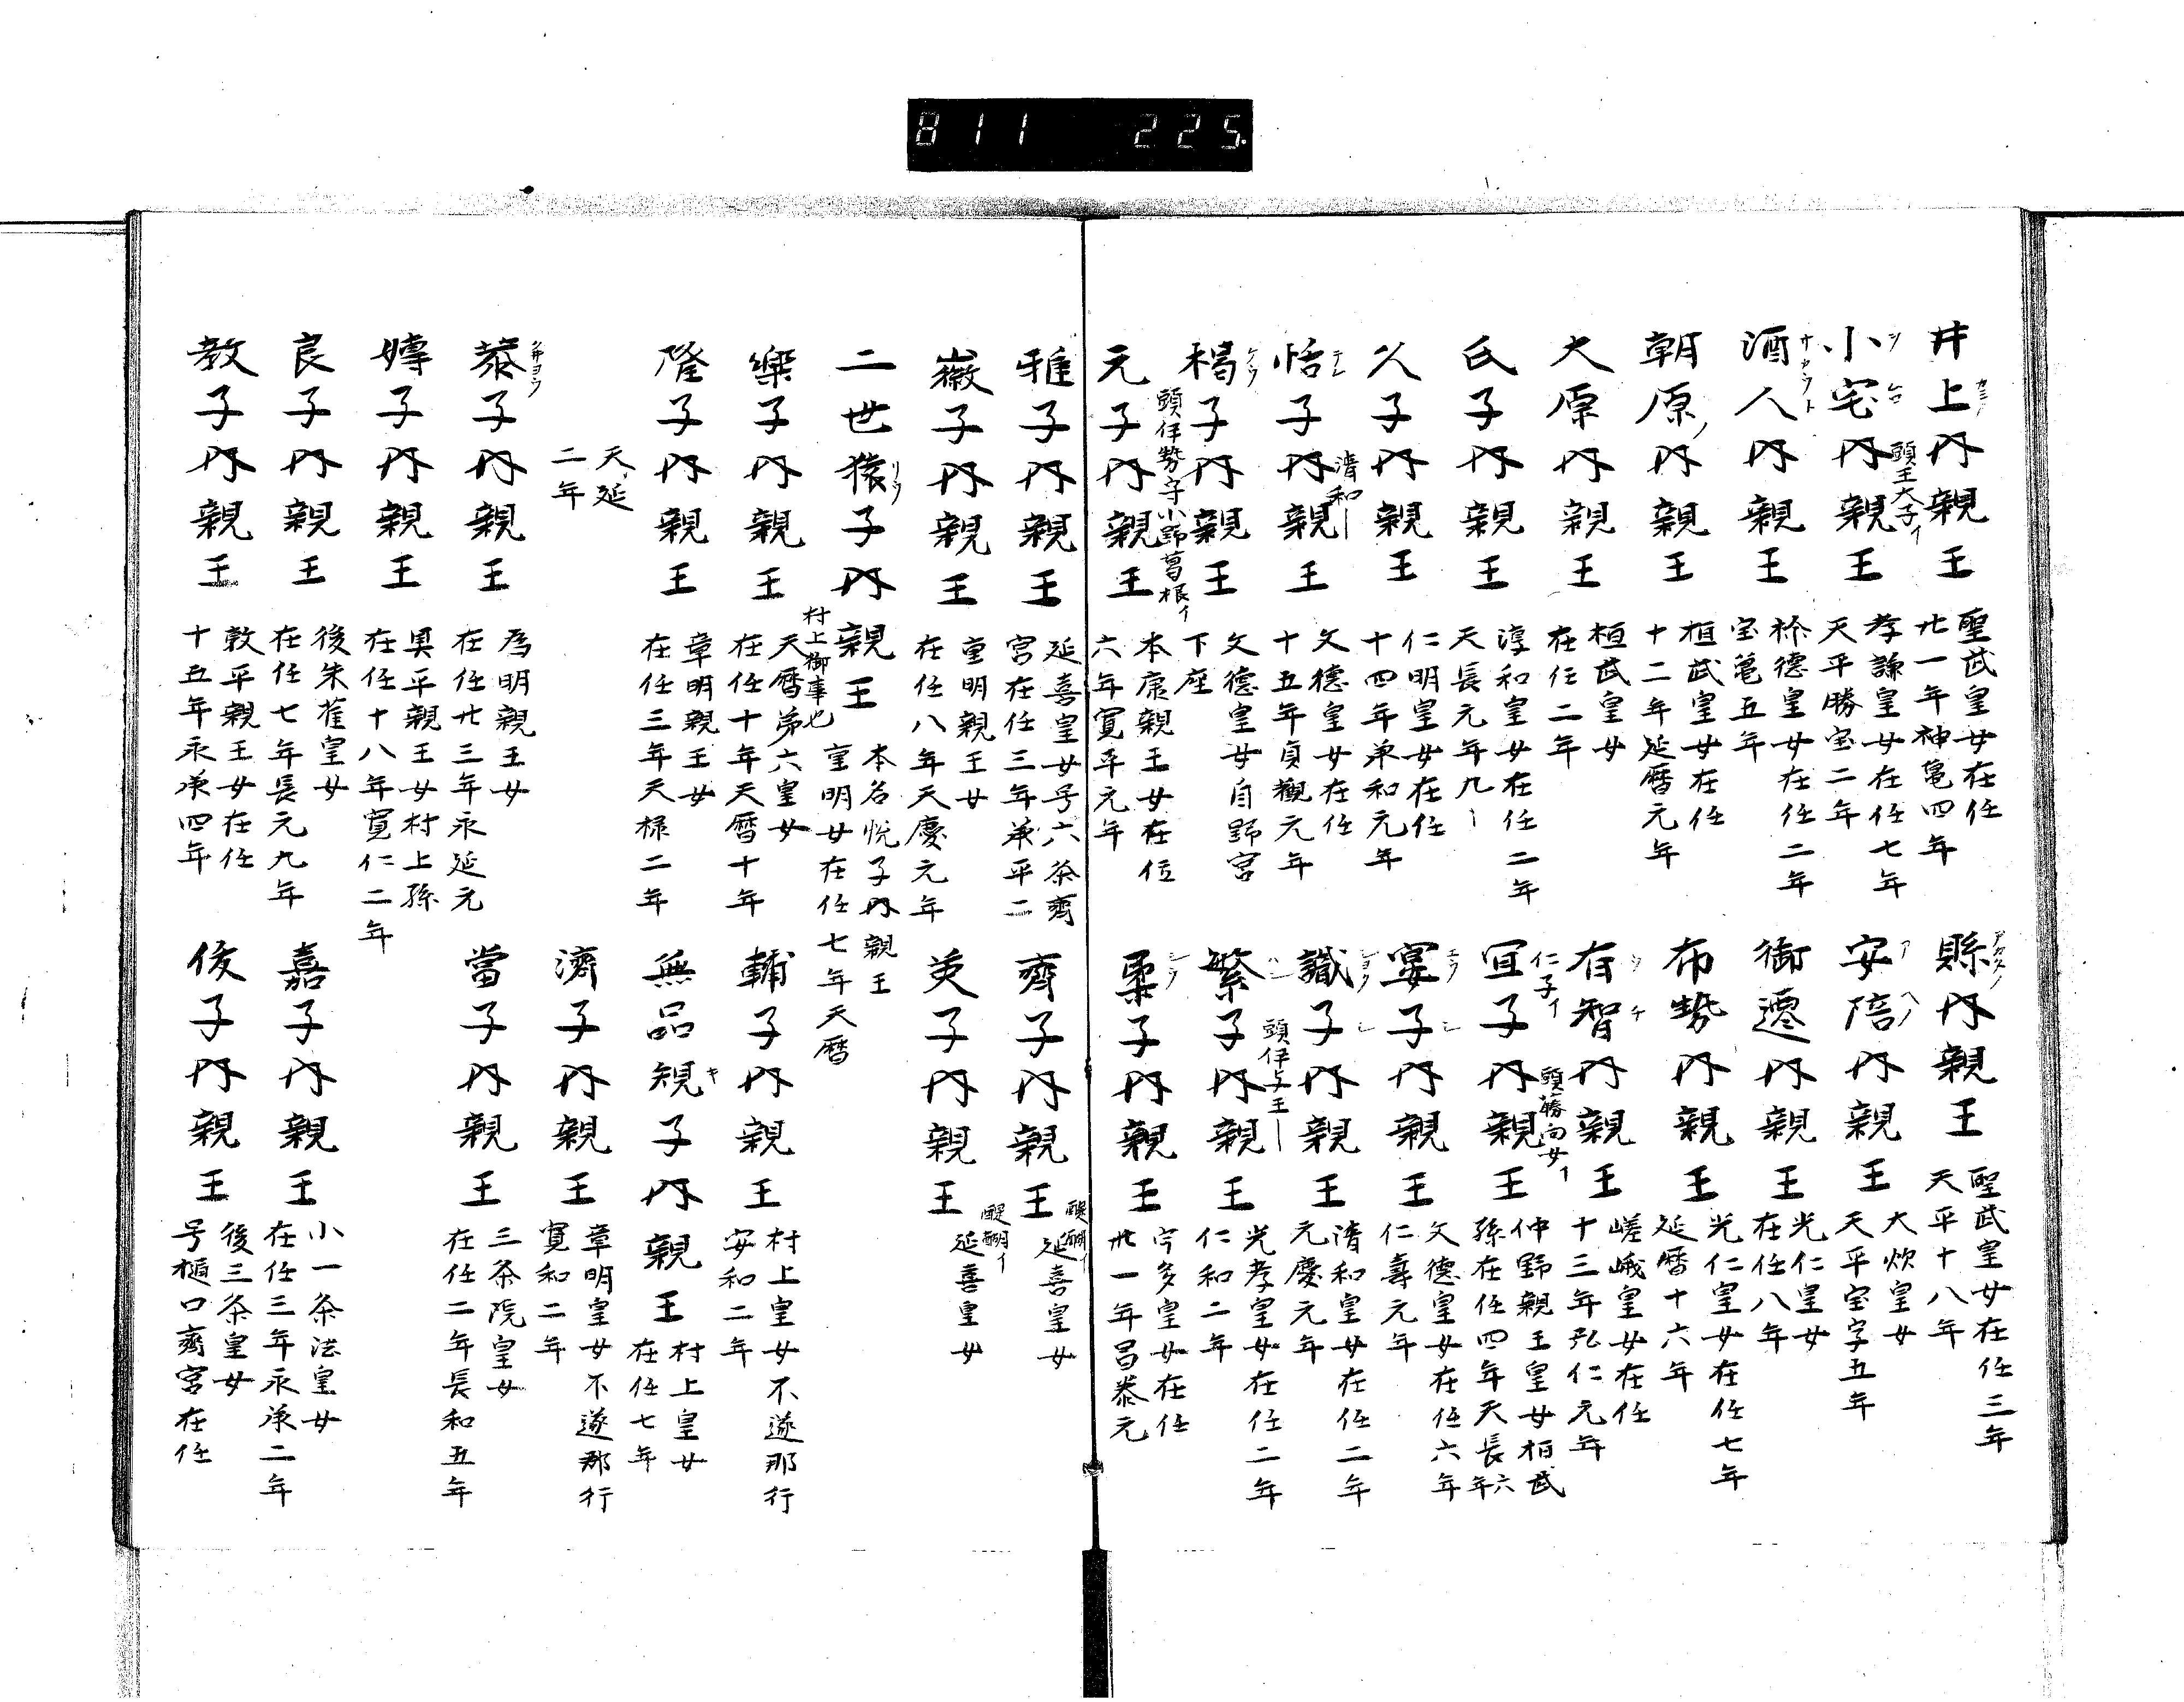 811 225
井上内親王 聖武皇女在任
廿一年神亀四年
縣内親王 聖武皇女在任三年
天平十八年
小宅内親王 孝謙皇女在任七年
天平勝宝二年
頭王大子イ
安陪内親王 大炊皇女
天平宝字五年
酒人内親王 称徳皇女在任二年
宝亀五年
御遷内親王 光仁皇女
在任八年
朝原内親王 桓武皇女在任
十二年延暦元年
布勢内親王 光仁皇女在任七年
延暦十六年
大原内親王 桓武皇女
在任二年
有智内親王 嵯峨皇女在任
十三年弘仁元年
仁子イ
氏子内親王 淳和皇女在任二年
天長元年九
宜子内親王 仲野親王皇女栢武
孫在任四年天長六年
頭藤向女イ
久子内親王 仁明皇女在任
十四年承和元年
宴子内親王 文徳皇女在任六年
仁寿元年
恬子内親王 文徳皇女在任
十五年貞観元年
清和
識子内親王 清和皇女在任二年
元慶元年
楬子内親王 文徳皇女自野宮
下座
繁子内親王 光孝皇女在任二年
仁和二年
元子内親王 本康親王女在位
六年寛平元年
頭伊勢守小野葛根イ
柔子内親王 宇多皇女在任
卅一年昌泰元
雅子内親王 延喜皇女号六条齊
宮在任三年承平二
齊子内親王 延喜皇女
醍醐イ
徽子内親王 重明親王女
在任八年天慶元年
英子内親王 延喜皇女
醍醐イ
二世
子内親王 本名悦子内親王
重明女在任七年天暦
村上御事也
樂子内親王 天暦第六皇女
在任十年天暦十年
輔子内親王 村上皇女不遂那行
安和二年
隆子内親王 章明親王女
在任三年天禄二年
無品規子内親王 村上皇女
在任七年
天延
二年
濟子内親王 章明皇女不遂那行
寛和二年
恭子内親王 為明親王女
在任廿三年永延元
當子内親王 三条院皇女
在任二年長和五年
嫥子内親王 具平親王女村上孫
在任十八年寛仁二年
良子内親王 後朱雀皇女
在任七年長元九年
嘉子内親王 小一条法皇女
在任三年永承二年
敎子内親王 敦平親王女在任
十五年永承四年
俊子内親王 後三条皇女
号樋口齊宮在任